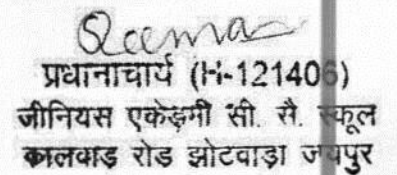 Reema
प्रधानाचार्य (H-121406)
जीनियस एकेडमी सी. सै. स्कूल
कालवाड रोड झोटवाड़ा जयपुर